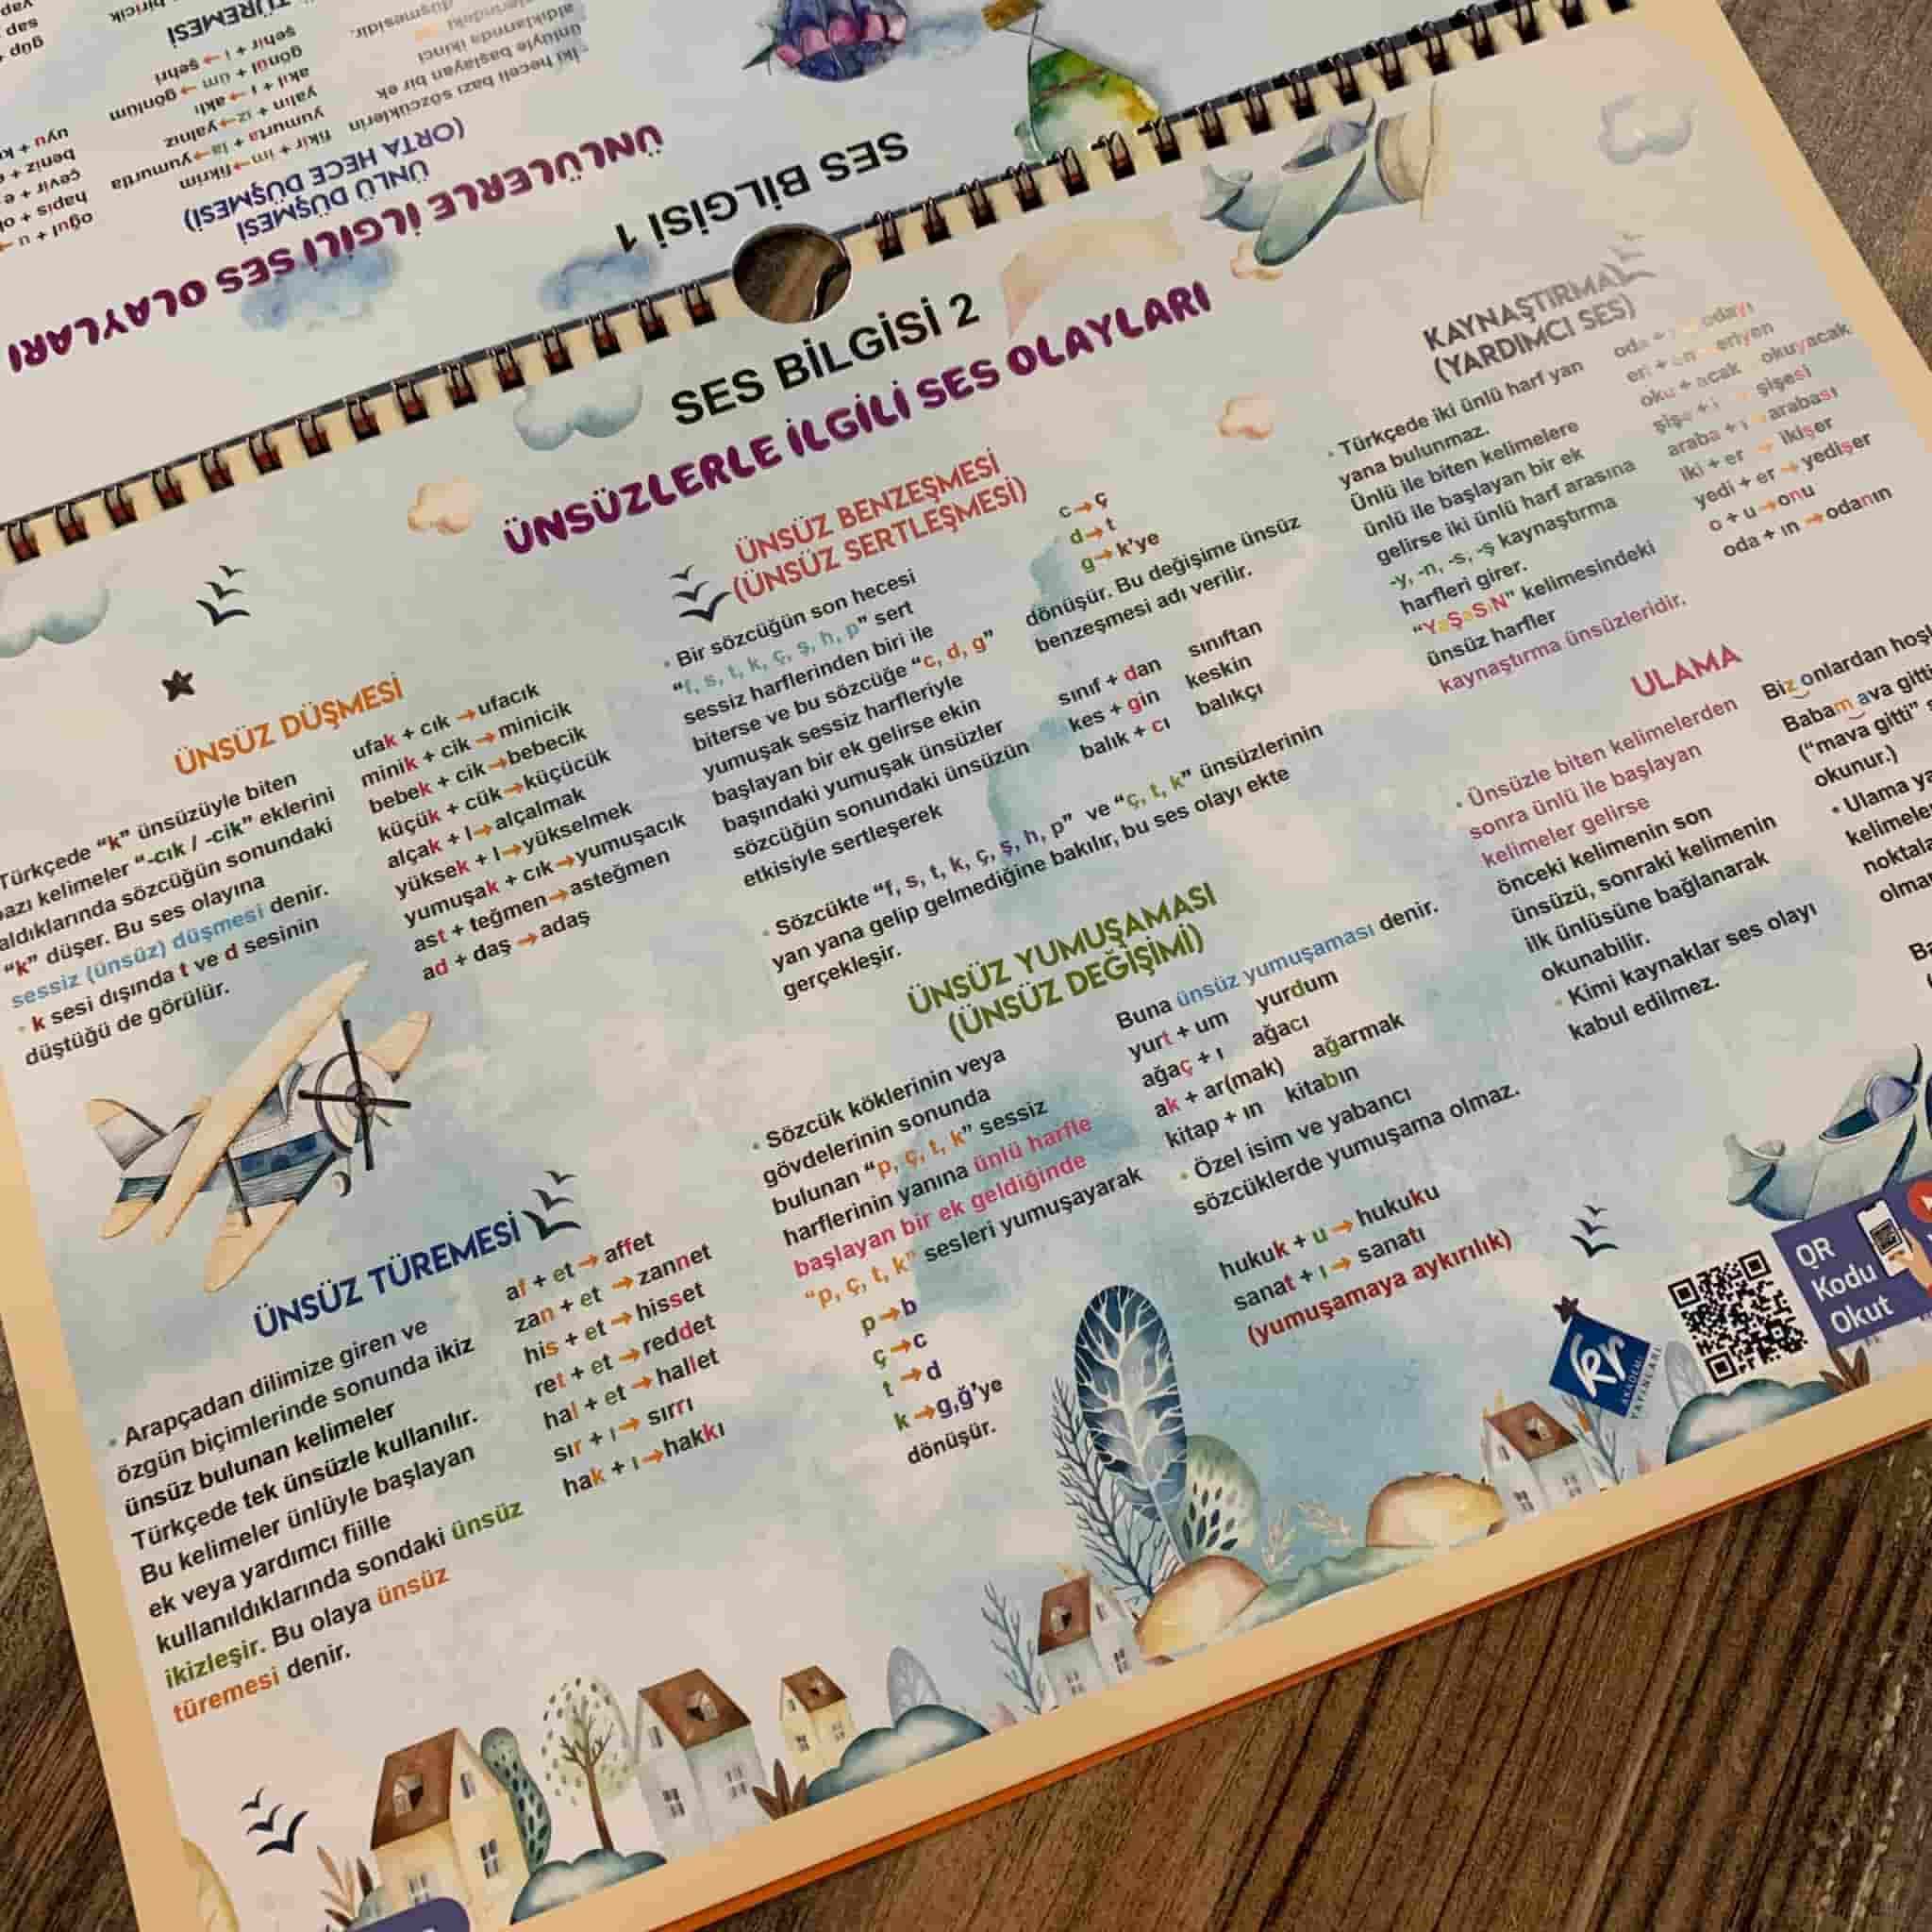 SES BİLGİSİ 1
ÜNLÜLERLE İLGİLİ SES OLAYLARI
ÜNLÜ DÜŞMESİ
(ORTA HECE DÜŞMESİ)
İki heceli bazı sözcüklerin
ünlüyle başlayan bir ek
aldıklarında ikinci
düşmesidir.
fikir + im→fikrim
yumurta + la→yumurtla
yalın + ız→yalnız
akıl + ı→aklı
gönül + üm→gönlüm
şehir + i→şehri
oğul + u
hapis + ol
çevir + e
beniz + e
uyu + k
TÜREMESİ
biricik
güp
sap
yap
SES BİLGİSİ 2
ÜNSÜZLERLE İLGİLİ SES OLAYLARI
ÜNSÜZ DÜŞMESİ
Türkçede “k” ünsüzüyle biten
bazı kelimeler “-cık / -cik” eklerini
aldıklarında sözcüğün sonundaki
“k” düşer. Bu ses olayına
sessiz (ünsüz) düşmesi denir.
• k sesi dışında t ve d sesinin
düştüğü de görülür.
ufak + cık→ufacık
minik + cik→minicik
bebek + cik→bebecik
küçük + cük→küçücük
alçak + l→alçalmak
yüksek + l→yükselmek
yumuşak + cık→yumuşacık
ast + teğmen→asteğmen
ad + daş→adaş
ÜNSÜZ TÜREMESİ
• Arapçadan dilimize giren ve
özgün biçimlerinde sonunda ikiz
ünsüz bulunan kelimeler
Türkçede tek ünsüzle kullanılır.
Bu kelimeler ünlüyle başlayan
ek veya yardımcı fiille
kullanıldıklarında sondaki ünsüz
ikizleşir. Bu olaya ünsüz
türemesi denir.
af + et→affet
zan + et→zannet
his + et→hisset
ret + et→reddet
hal + et→hallet
sır + ı→sırrı
hak + ı→hakkı
ÜNSÜZ BENZEŞMESİ
(ÜNSÜZ SERTLEŞMESİ)
• Bir sözcüğün son hecesi
“f, s, t, k, ç, ş, h, p” sert
sessiz harflerinden biri ile
biterse ve bu sözcüğe “c, d, g”
yumuşak sessiz harfleriyle
başlayan bir ek gelirse ekin
başındaki yumuşak ünsüzler
sözcüğün sonundaki ünsüzün
etkisiyle sertleşerek
c→ç
d→t
g→k’ye
dönüşür. Bu değişime ünsüz
benzeşmesi adı verilir.
sınıf + dan sınıftan
kes + gin keskin
balık + cı balıkçı
• Sözcükte “f, s, t, k, ç, ş, h, p” ve “ç, t, k” ünsüzlerinin
yan yana gelip gelmediğine bakılır, bu ses olayı ekte
gerçekleşir.
ÜNSÜZ YUMUŞAMASI
(ÜNSÜZ DEĞİŞİMİ)
• Sözcük köklerinin veya
gövdelerinin sonunda
bulunan “p, ç, t, k” sessiz
harflerinin yanına ünlü harfle
başlayan bir ek geldiğinde
“p, ç, t, k” sesleri yumuşayarak
p→b
ç→c
t→d
k→g,ğ’ye
dönüşür.
Buna ünsüz yumuşaması denir.
yurt + um yurdum
ağaç + ı ağacı
ak + ar(mak) ağarmak
kitap + ın kitabın
• Özel isim ve yabancı
sözcüklerde yumuşama olmaz.
hukuk + u→hukuku
sanat + ı→sanatı
(yumuşamaya aykırılık)
KAYNAŞTIRMA
(YARDIMCI SES)
• Türkçede iki ünlü harf yan
yana bulunmaz.
Ünlü ile biten kelimelere
ünlü ile başlayan bir ek
gelirse iki ünlü harf arasına
-y, -n, -s, -ş kaynaştırma
harfleri girer.
“YaŞaSıN” kelimesindeki
ünsüz harfler
kaynaştırma ünsüzleridir.
oda + odayı
eri + en eriyen
oku + acak okuyacak
şişe + i şişesi
araba + ı arabası
iki + er→ikişer
yedi + er→yedişer
o + u→onu
oda + ın→odanın
ULAMA
• Ünsüzle biten kelimelerden
sonra ünlü ile başlayan
kelimeler gelirse
önceki kelimenin son
ünsüzü, sonraki kelimenin
ilk ünlüsüne bağlanarak
okunabilir.
• Kimi kaynaklar ses olayı
kabul edilmez.
Biz onlardan
Babam ava
(“mava gitti”
okunur.)
• Ulama
QR
Kodu
Okut
kr
AKADEMİ
YAYINLARI